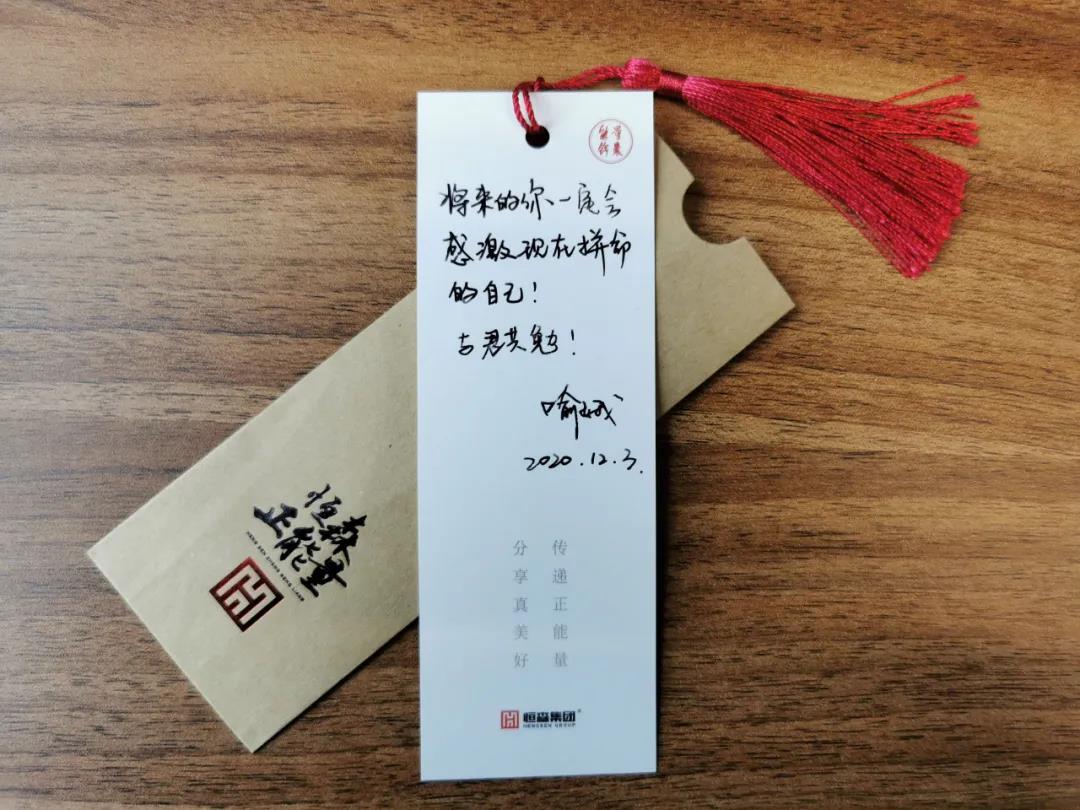 将来的你一定会
感激现在拼命
的自己！
与君共勉！
2020.12.3.
传递正能量
分享真美好
恒森集团
HENGSEN GROUP
恒森
正能量